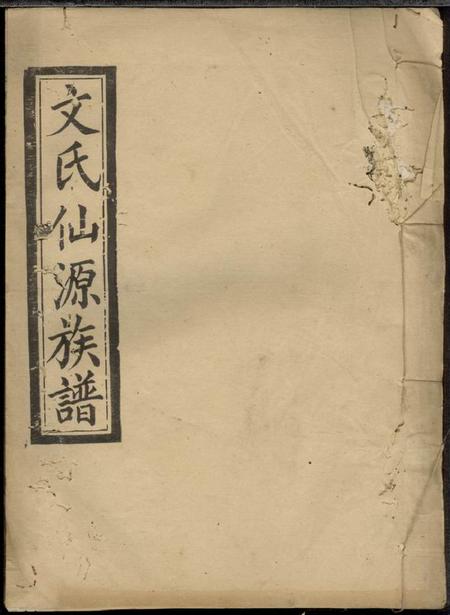 文氏仙源族譜